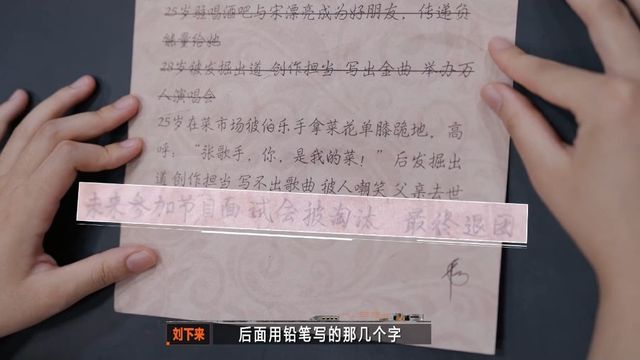 25岁驻唱酒吧与宋漂亮成为好朋友，传递负
能量给她
28岁被发掘出道 创作担当 写出金曲 举办万
人演唱会
25岁在菜市场被伯乐手拿菜花单膝跪地，高
呼：“张歌手，你，是我的菜！”后发掘出
道 创作担当 写不出歌曲 被人嘲笑 父亲去世
未来参加节目面试会被淘汰 最终退团
刘下来
后面用铅笔写的那几个字